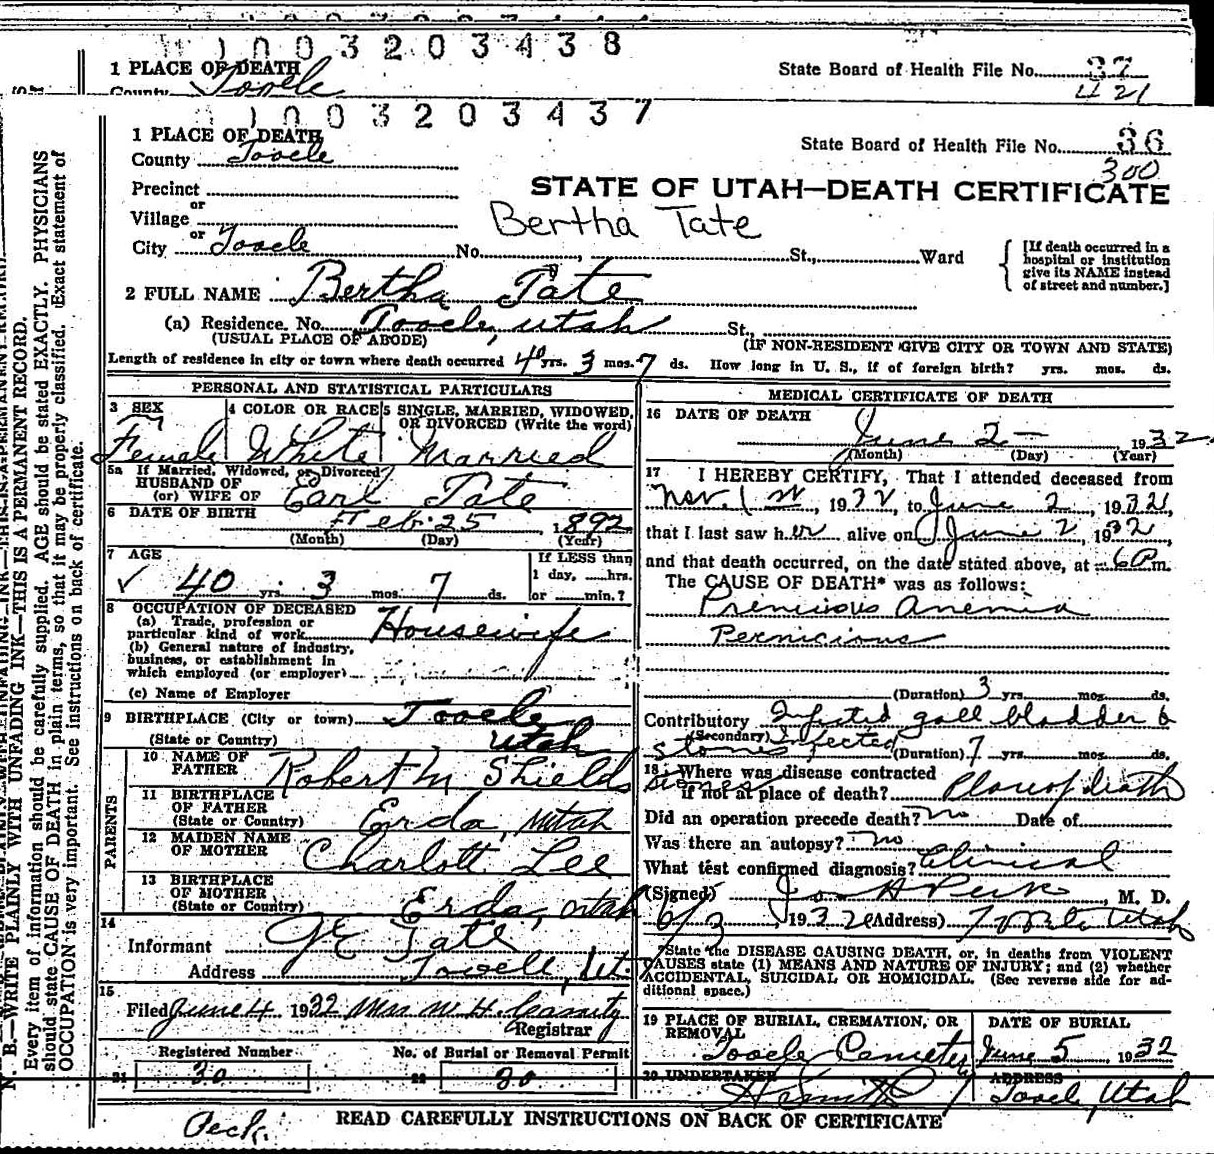 1 0 0 3 2 0 3 4 3 8
1 PLACE OF DEATH
County Tooele
State Board of Health File No. 37
421
1 0 0 3 2 0 3 4 3 7
1 PLACE OF DEATH
County Tooele
State Board of Health File No. 36
300
Precinct
or
Village
STATE OF UTAH—DEATH CERTIFICATE
Bertha Tate
or
City Tooele No. , St., Ward
[If death occurred in a hospital or institution give its NAME instead of street and number.]
2 FULL NAME Bertha Tate
(a) Residence. No. Tooele, Utah St.,
(USUAL PLACE OF ABODE) (IF NON-RESIDENT GIVE CITY OR TOWN AND STATE)
Length of residence in city or town where death occurred 40 yrs. 3 mos. 7 ds. How long in U. S., if of foreign birth? yrs. mos. ds.
PERSONAL AND STATISTICAL PARTICULARS
3 SEX 4 COLOR OR RACE 5 SINGLE, MARRIED, WIDOWED, OR DIVORCED (Write the word)
Female White Married
5a If Married, Widowed, or Divorced
HUSBAND OF
(or) WIFE OF Earl Tate
6 DATE OF BIRTH Feb. 25 1892
(Month) (Day) (Year)
7 AGE If LESS than
✓ 40 yrs. 3 mos. 7 ds. 1 day, hrs.
or min.?
8 OCCUPATION OF DECEASED
(a) Trade, profession or
particular kind of work Housewife
(b) General nature of industry,
business, or establishment in
which employed (or employer)
(c) Name of Employer
9 BIRTHPLACE (City or town) Tooele
(State or Country) Utah
PARENTS
10 NAME OF FATHER Robert M Shields
11 BIRTHPLACE OF FATHER (State or Country) Erda, Utah
12 MAIDEN NAME OF MOTHER Charlott Lee
13 BIRTHPLACE OF MOTHER (State or Country) Erda, Utah
14
Informant JE Tate
Address Tooele, Ut.
15
Filed June 4 1932 Mrs W. H. Cassity
Registrar
Registered Number No. of Burial or Removal Permit
21 30 22 30
MEDICAL CERTIFICATE OF DEATH
16 DATE OF DEATH
June 2 — 1932
(Month) (Day) (Year)
17 I HEREBY CERTIFY, That I attended deceased from
Nov. 1 st, 1932, to June 2, 1932,
that I last saw her alive on June 2, 1932,
and that death occurred, on the date stated above, at 6 P m.
The CAUSE OF DEATH* was as follows:
Prenicious Anemia
Pernicious
(Duration) 3 yrs. mos. ds.
Contributory Infected gall bladder &
(Secondary)
stones infected (Duration) 7 yrs. mos. ds.
18 Where was disease contracted
if not at place of death? Place of death
Did an operation precede death? no Date of
Was there an autopsy? no
What test confirmed diagnosis? Clinical
(Signed) Jos H Peck, M. D.
6/3 1932 (Address) Tooele Utah
*State the DISEASE CAUSING DEATH, or, in deaths from VIOLENT
CAUSES state (1) MEANS AND NATURE OF INJURY; and (2) whether
ACCIDENTAL, SUICIDAL OR HOMICIDAL. (See reverse side for ad-
ditional space.)
19 PLACE OF BURIAL, CREMATION, OR REMOVAL DATE OF BURIAL
Tooele Cemetery June 5, 1932
20 UNDERTAKER ADDRESS
Smith Tooele, Utah
Peck.
READ CAREFULLY INSTRUCTIONS ON BACK OF CERTIFICATE
N. B.—WRITE PLAINLY WITH UNFADING INK—THIS IS A PERMANENT RECORD.
Every item of information should be carefully supplied. AGE should be stated EXACTLY. PHYSICIANS
should state CAUSE OF DEATH in plain terms, so that it may be properly classified. Exact statement of
OCCUPATION is very important. See instructions on back of certificate.